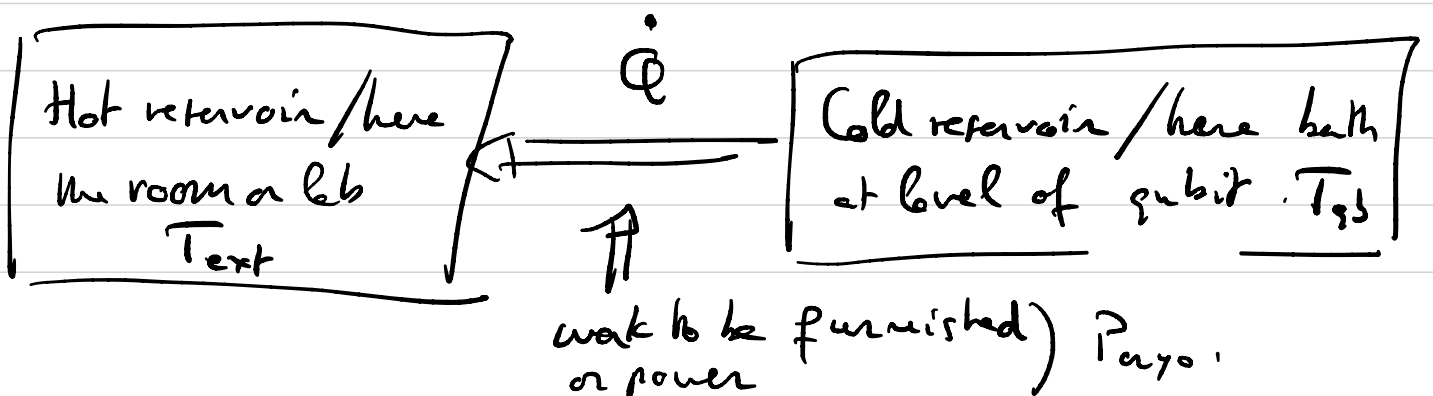 Q̇
Hot reservoir / here
the room or lab
T_ext
Cold reservoir / here bath
at level of qubit. T_qb
work to be furnished) P_cryo.
or power